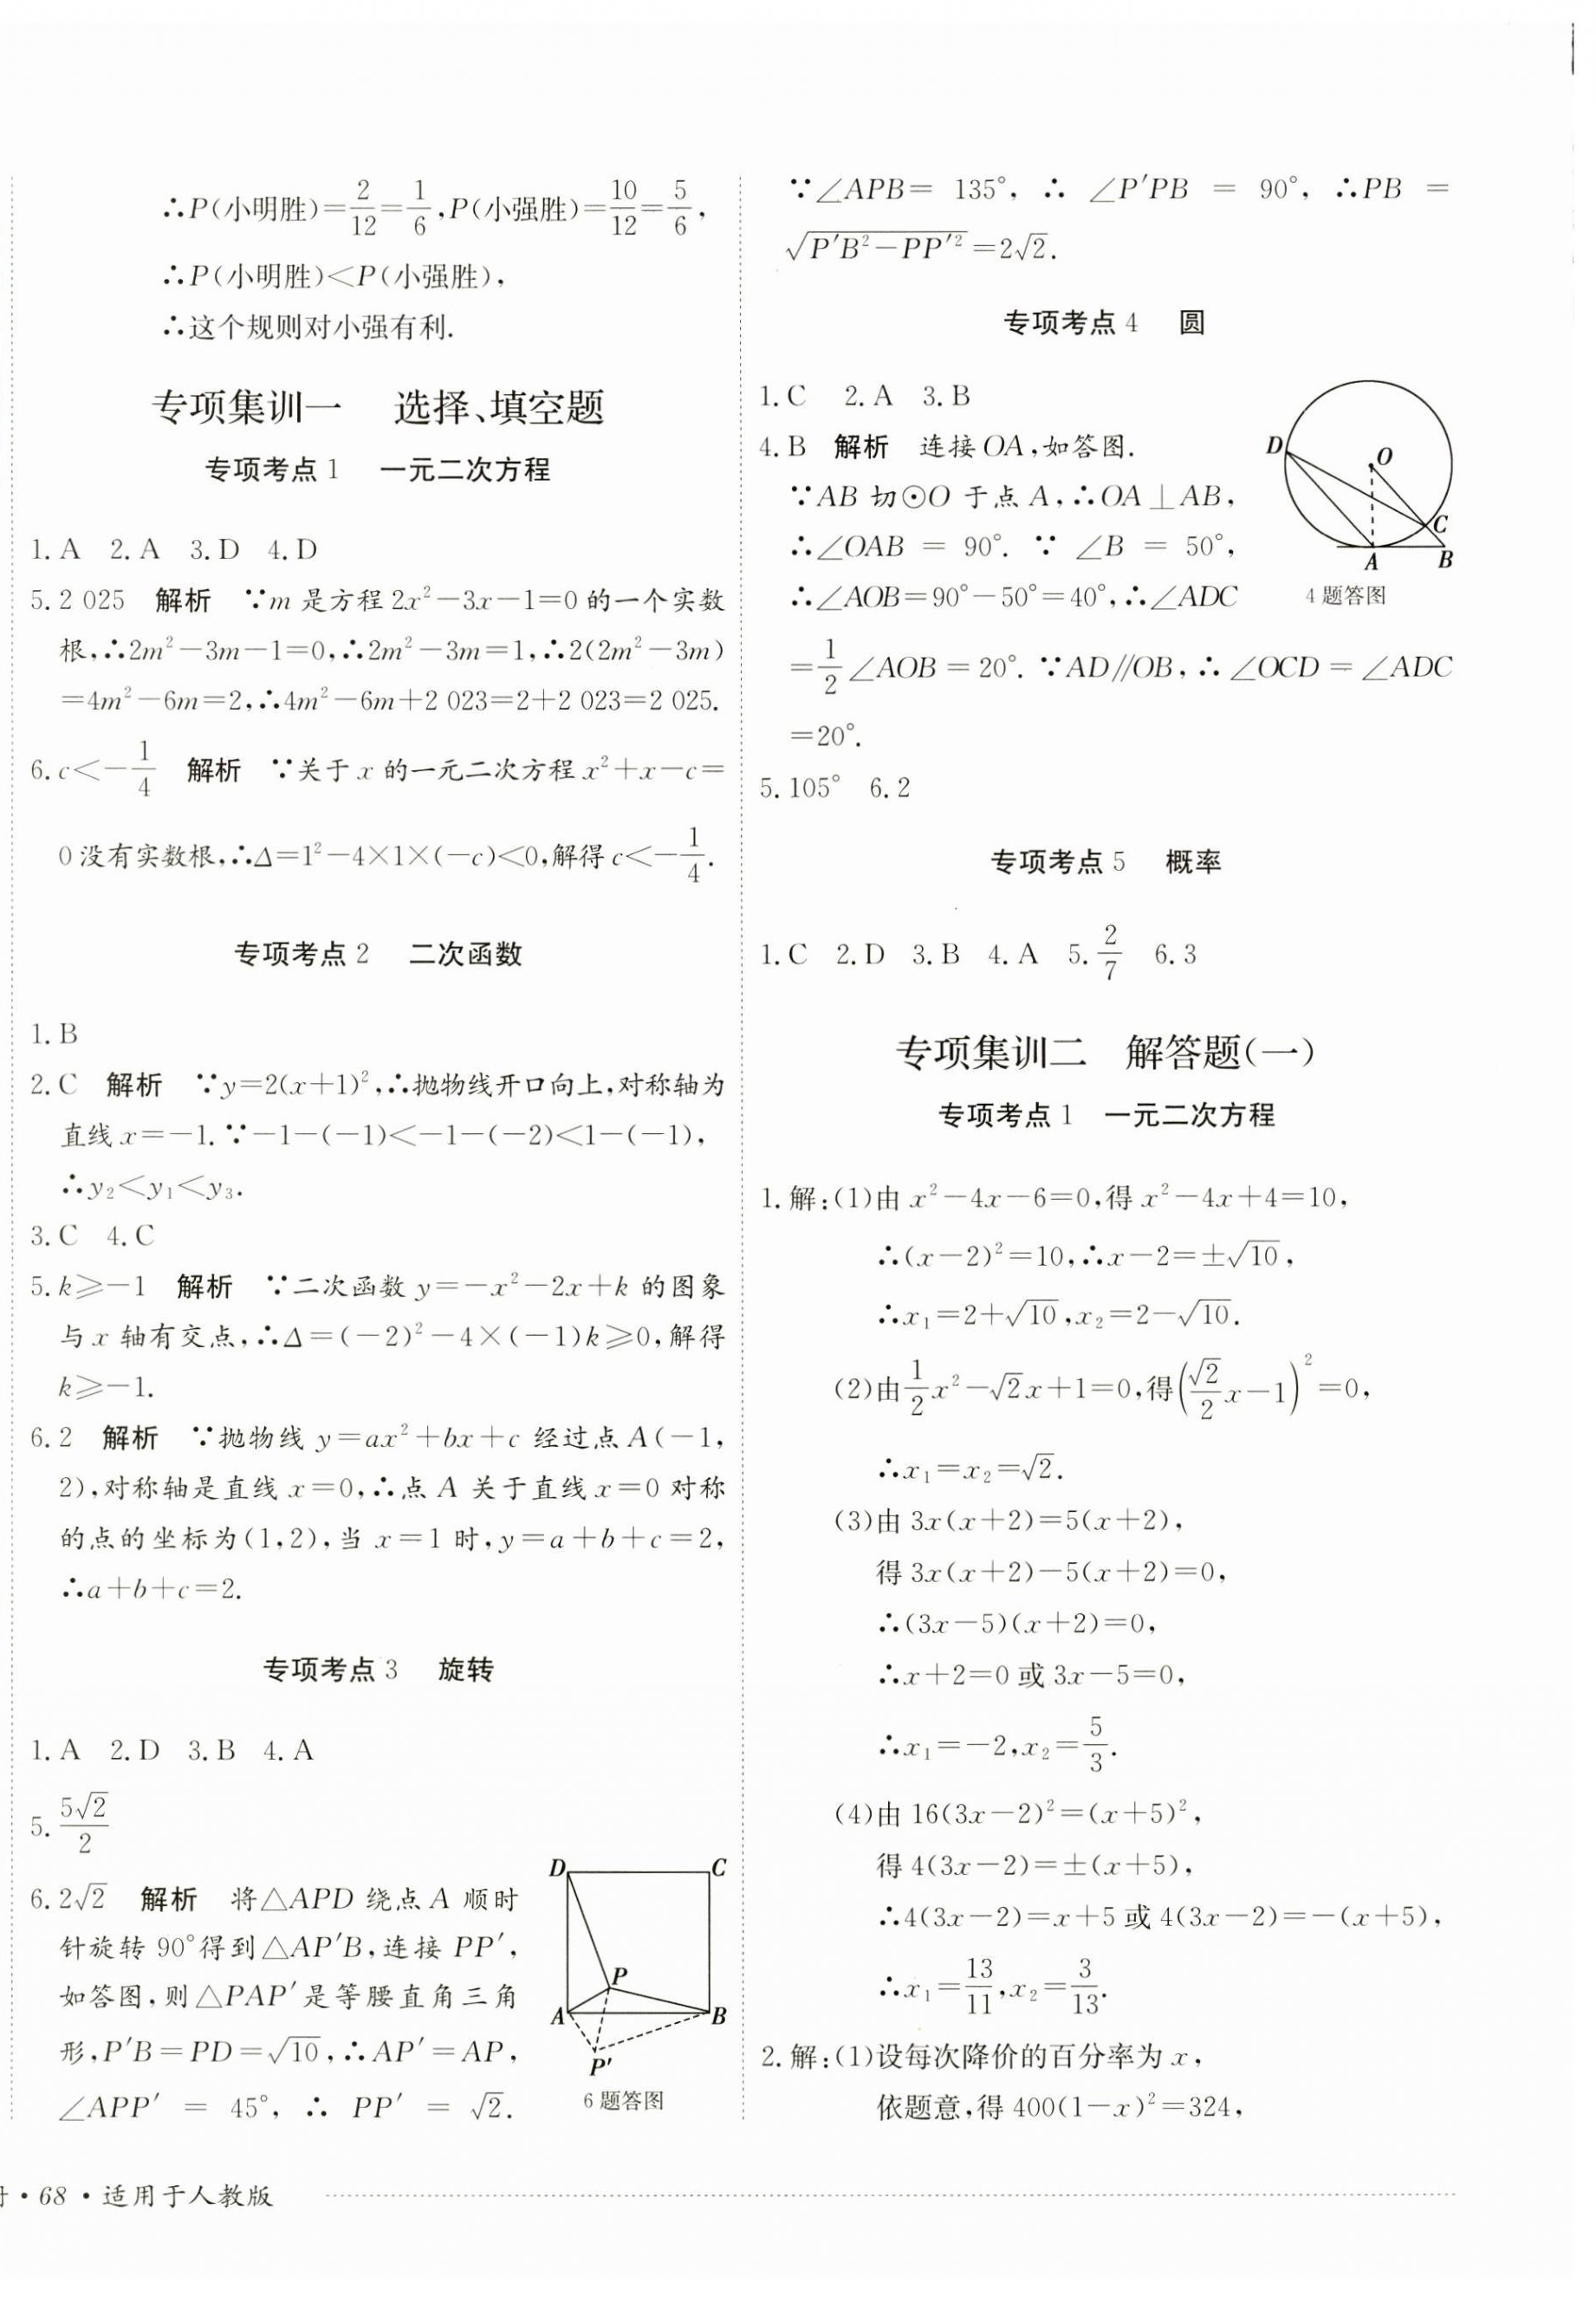 ∴P(小明胜)=2/12=1/6,P(小强胜)=10/12=5/6,
∴P(小明胜)<P(小强胜),
∴这个规则对小强有利.
专项集训一 选择、填空题
专项考点1 一元二次方程
1.A 2.A 3.D 4.D
5.2 025 解析 ∵m是方程2x²-3x-1=0的一个实数
根,∴2m²-3m-1=0,∴2m²-3m=1,∴2(2m²-3m)
=4m²-6m=2,∴4m²-6m+2 023=2+2 023=2 025.
6.c<-1/4 解析 ∵关于x的一元二次方程x²+x-c=
0没有实数根,∴Δ=1²-4×1×(-c)<0,解得c<-1/4.
专项考点2 二次函数
1.B
2.C 解析 ∵y=2(x+1)²,∴抛物线开口向上,对称轴为
直线x=-1.∵-1-(-1)<-1-(-2)<1-(-1),
∴y₂<y₁<y₃.
3.C 4.C
5.k≥-1 解析 ∵二次函数y=-x²-2x+k的图象
与x轴有交点,∴Δ=(-2)²-4×(-1)k≥0,解得
k≥-1.
6.2 解析 ∵抛物线y=ax²+bx+c经过点A(-1,
2),对称轴是直线x=0,∴点A关于直线x=0对称
的点的坐标为(1,2),当x=1时,y=a+b+c=2,
∴a+b+c=2.
专项考点3 旋转
1.A 2.D 3.B 4.A
5.5√2/2
6.2√2 解析 将△APD绕点A顺时
针旋转90°得到△AP′B,连接PP′,
如答图,则△PAP′是等腰直角三角
形,P′B=PD=√10,∴AP′=AP,
∠APP′ = 45°, ∴ PP′ = √2.
D C
P
A B
P′
6题答图
∵∠APB= 135°, ∴ ∠P′PB = 90°, ∴PB =
√(P′B²-PP′²)=2√2.
专项考点4 圆
1.C 2.A 3.B
4.B 解析 连接OA,如答图.
∵AB切⊙O于点A,∴OA⊥AB,
∴∠OAB = 90°. ∵ ∠B = 50°,
∴∠AOB=90°-50°=40°,∴∠ADC
=1/2∠AOB=20°.∵AD//OB,∴∠OCD=∠ADC
=20°.
D
O
C
A B
4题答图
5.105° 6.2
专项考点5 概率
1.C 2.D 3.B 4.A 5.2/7 6.3
专项集训二 解答题(一)
专项考点1 一元二次方程
1.解:(1)由x²-4x-6=0,得x²-4x+4=10,
∴(x-2)²=10,∴x-2=±√10,
∴x₁=2+√10,x₂=2-√10.
(2)由1/2x²-√2x+1=0,得(√2/2x-1)²=0,
∴x₁=x₂=√2.
(3)由3x(x+2)=5(x+2),
得3x(x+2)-5(x+2)=0,
∴(3x-5)(x+2)=0,
∴x+2=0或3x-5=0,
∴x₁=-2,x₂=5/3.
(4)由16(3x-2)²=(x+5)²,
得4(3x-2)=±(x+5),
∴4(3x-2)=x+5或4(3x-2)=-(x+5),
∴x₁=13/11,x₂=3/13.
2.解:(1)设每次降价的百分率为x,
依题意,得400(1-x)²=324,
·68·适用于人教版